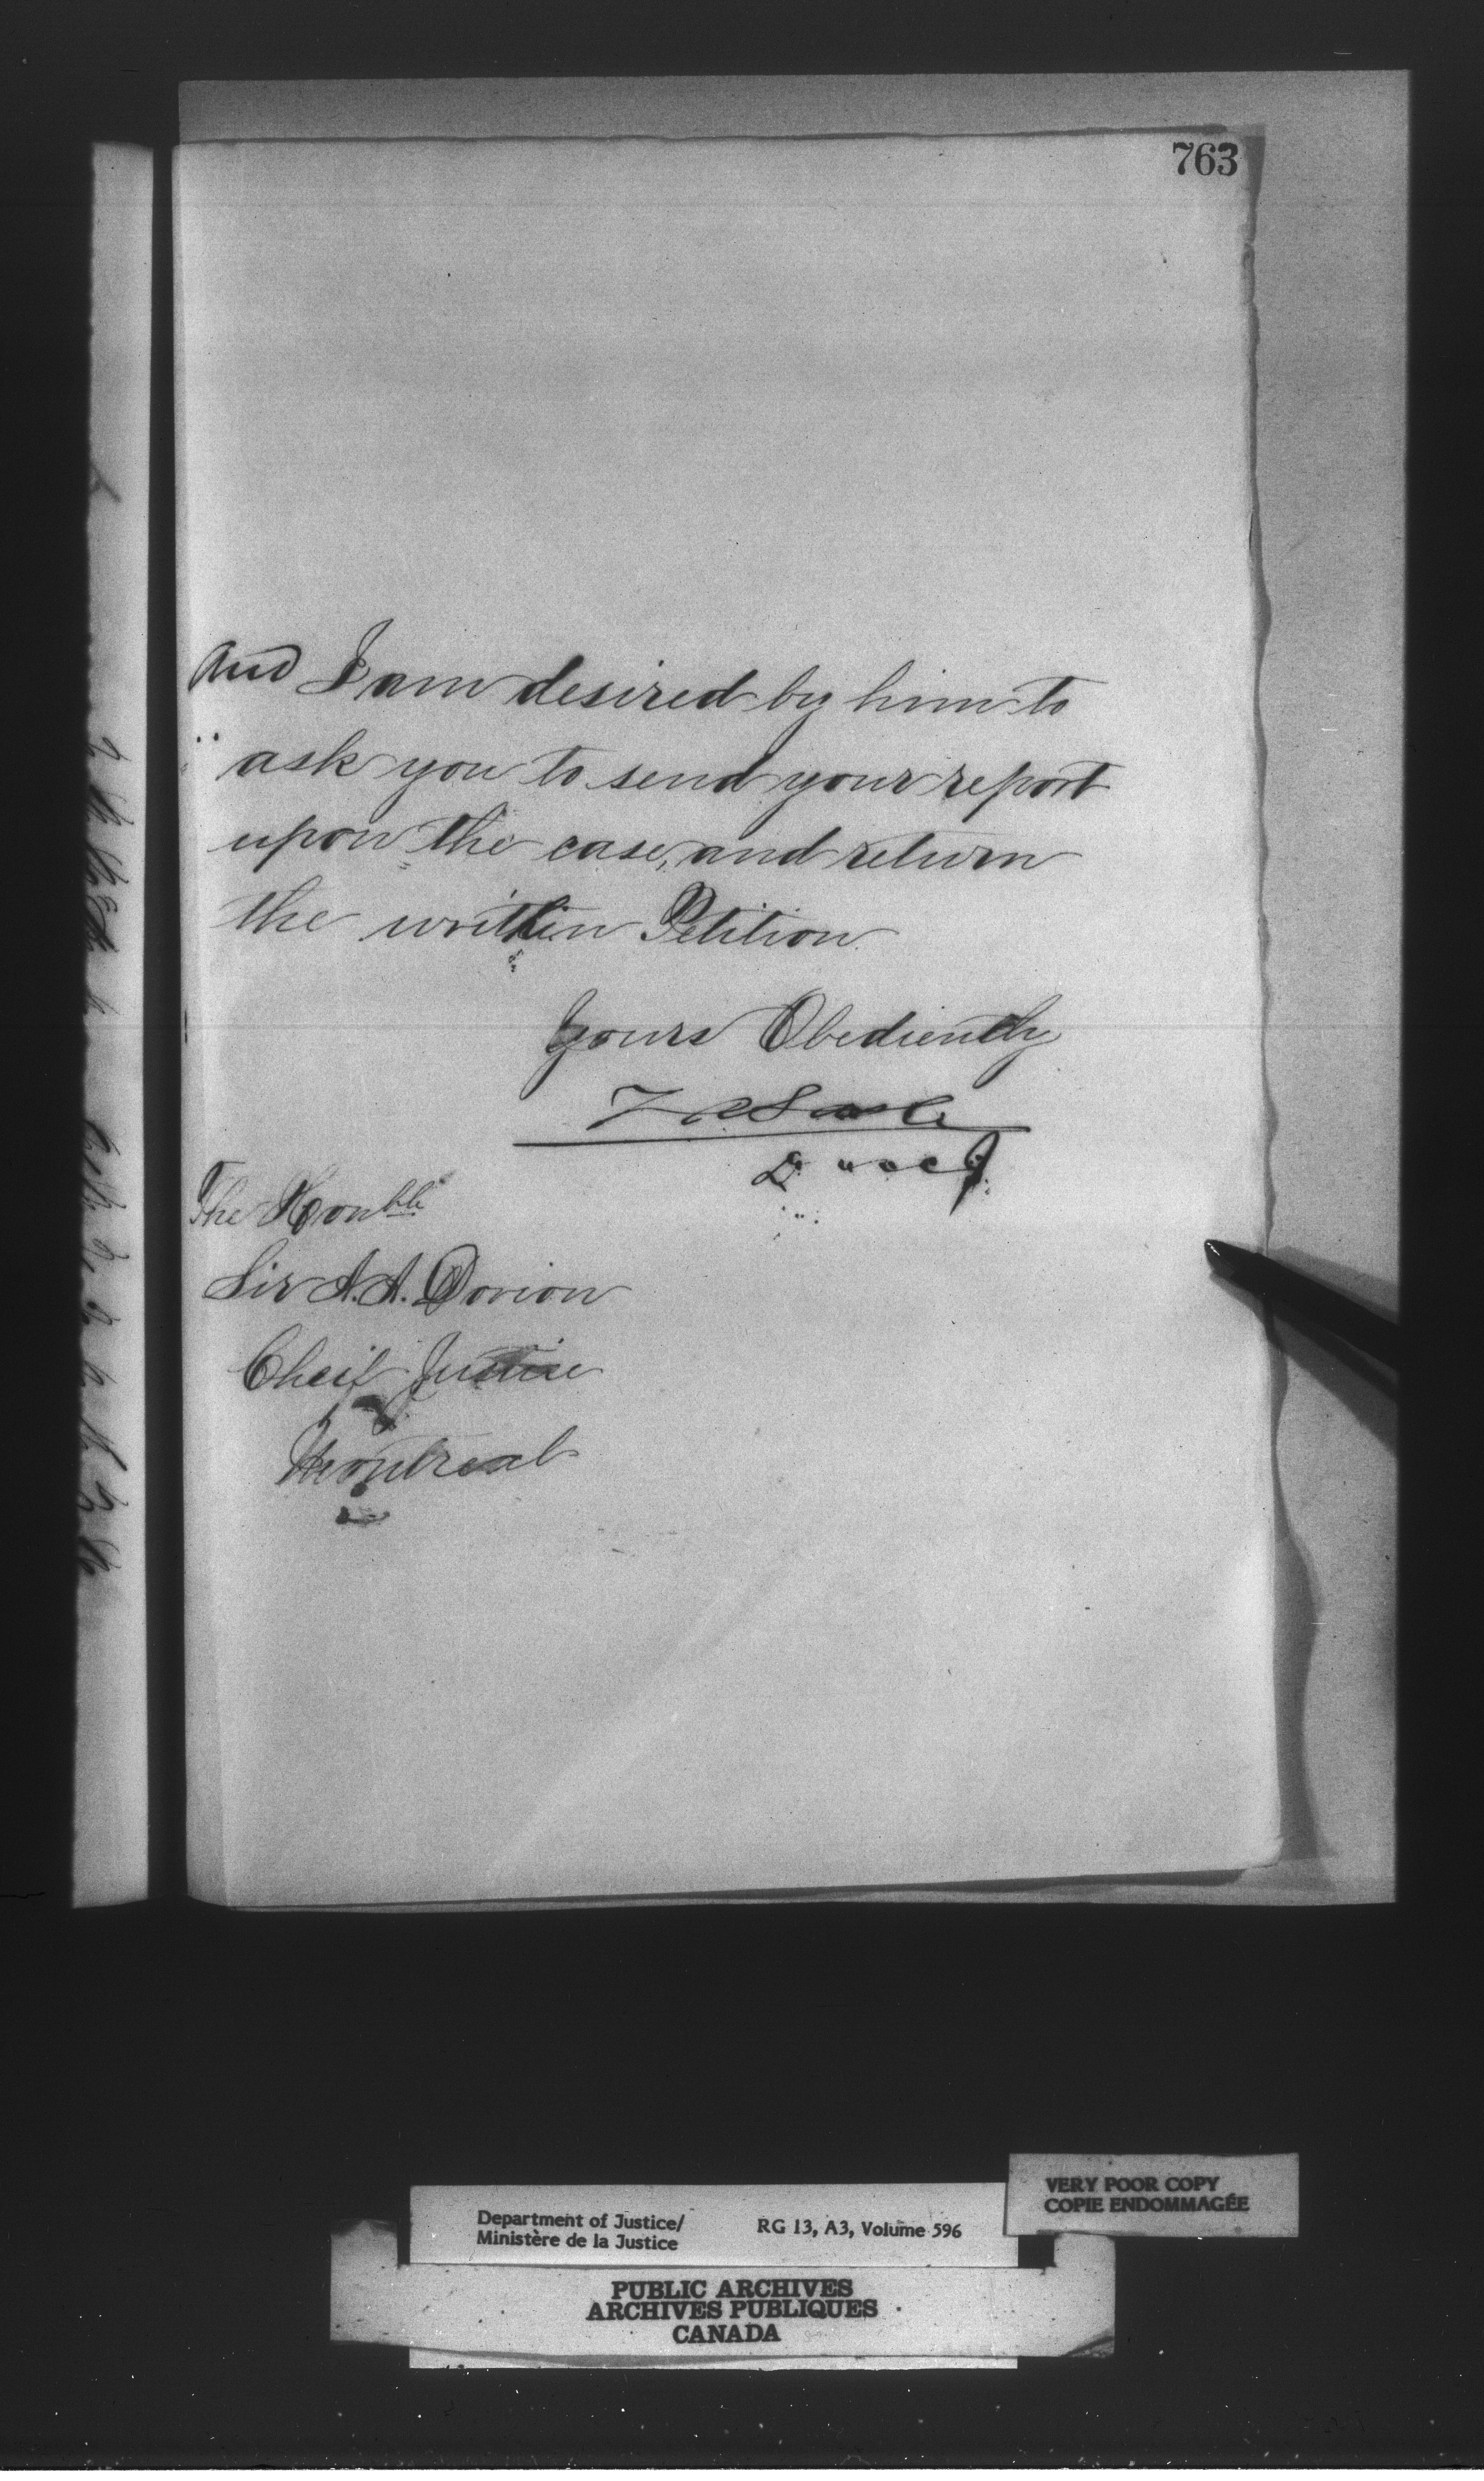 763
and I am desired by him to
ask you to send your report
upon the case, and return
the written Petition
Yours Obediently
The Honble
Sir A. A. Dorion
Cheif Justice
Montreal
Department of Justice/
Ministère de la Justice
RG 13, A3, Volume 596
VERY POOR COPY
COPIE ENDOMMAGÉE
PUBLIC ARCHIVES
ARCHIVES PUBLIQUES
CANADA